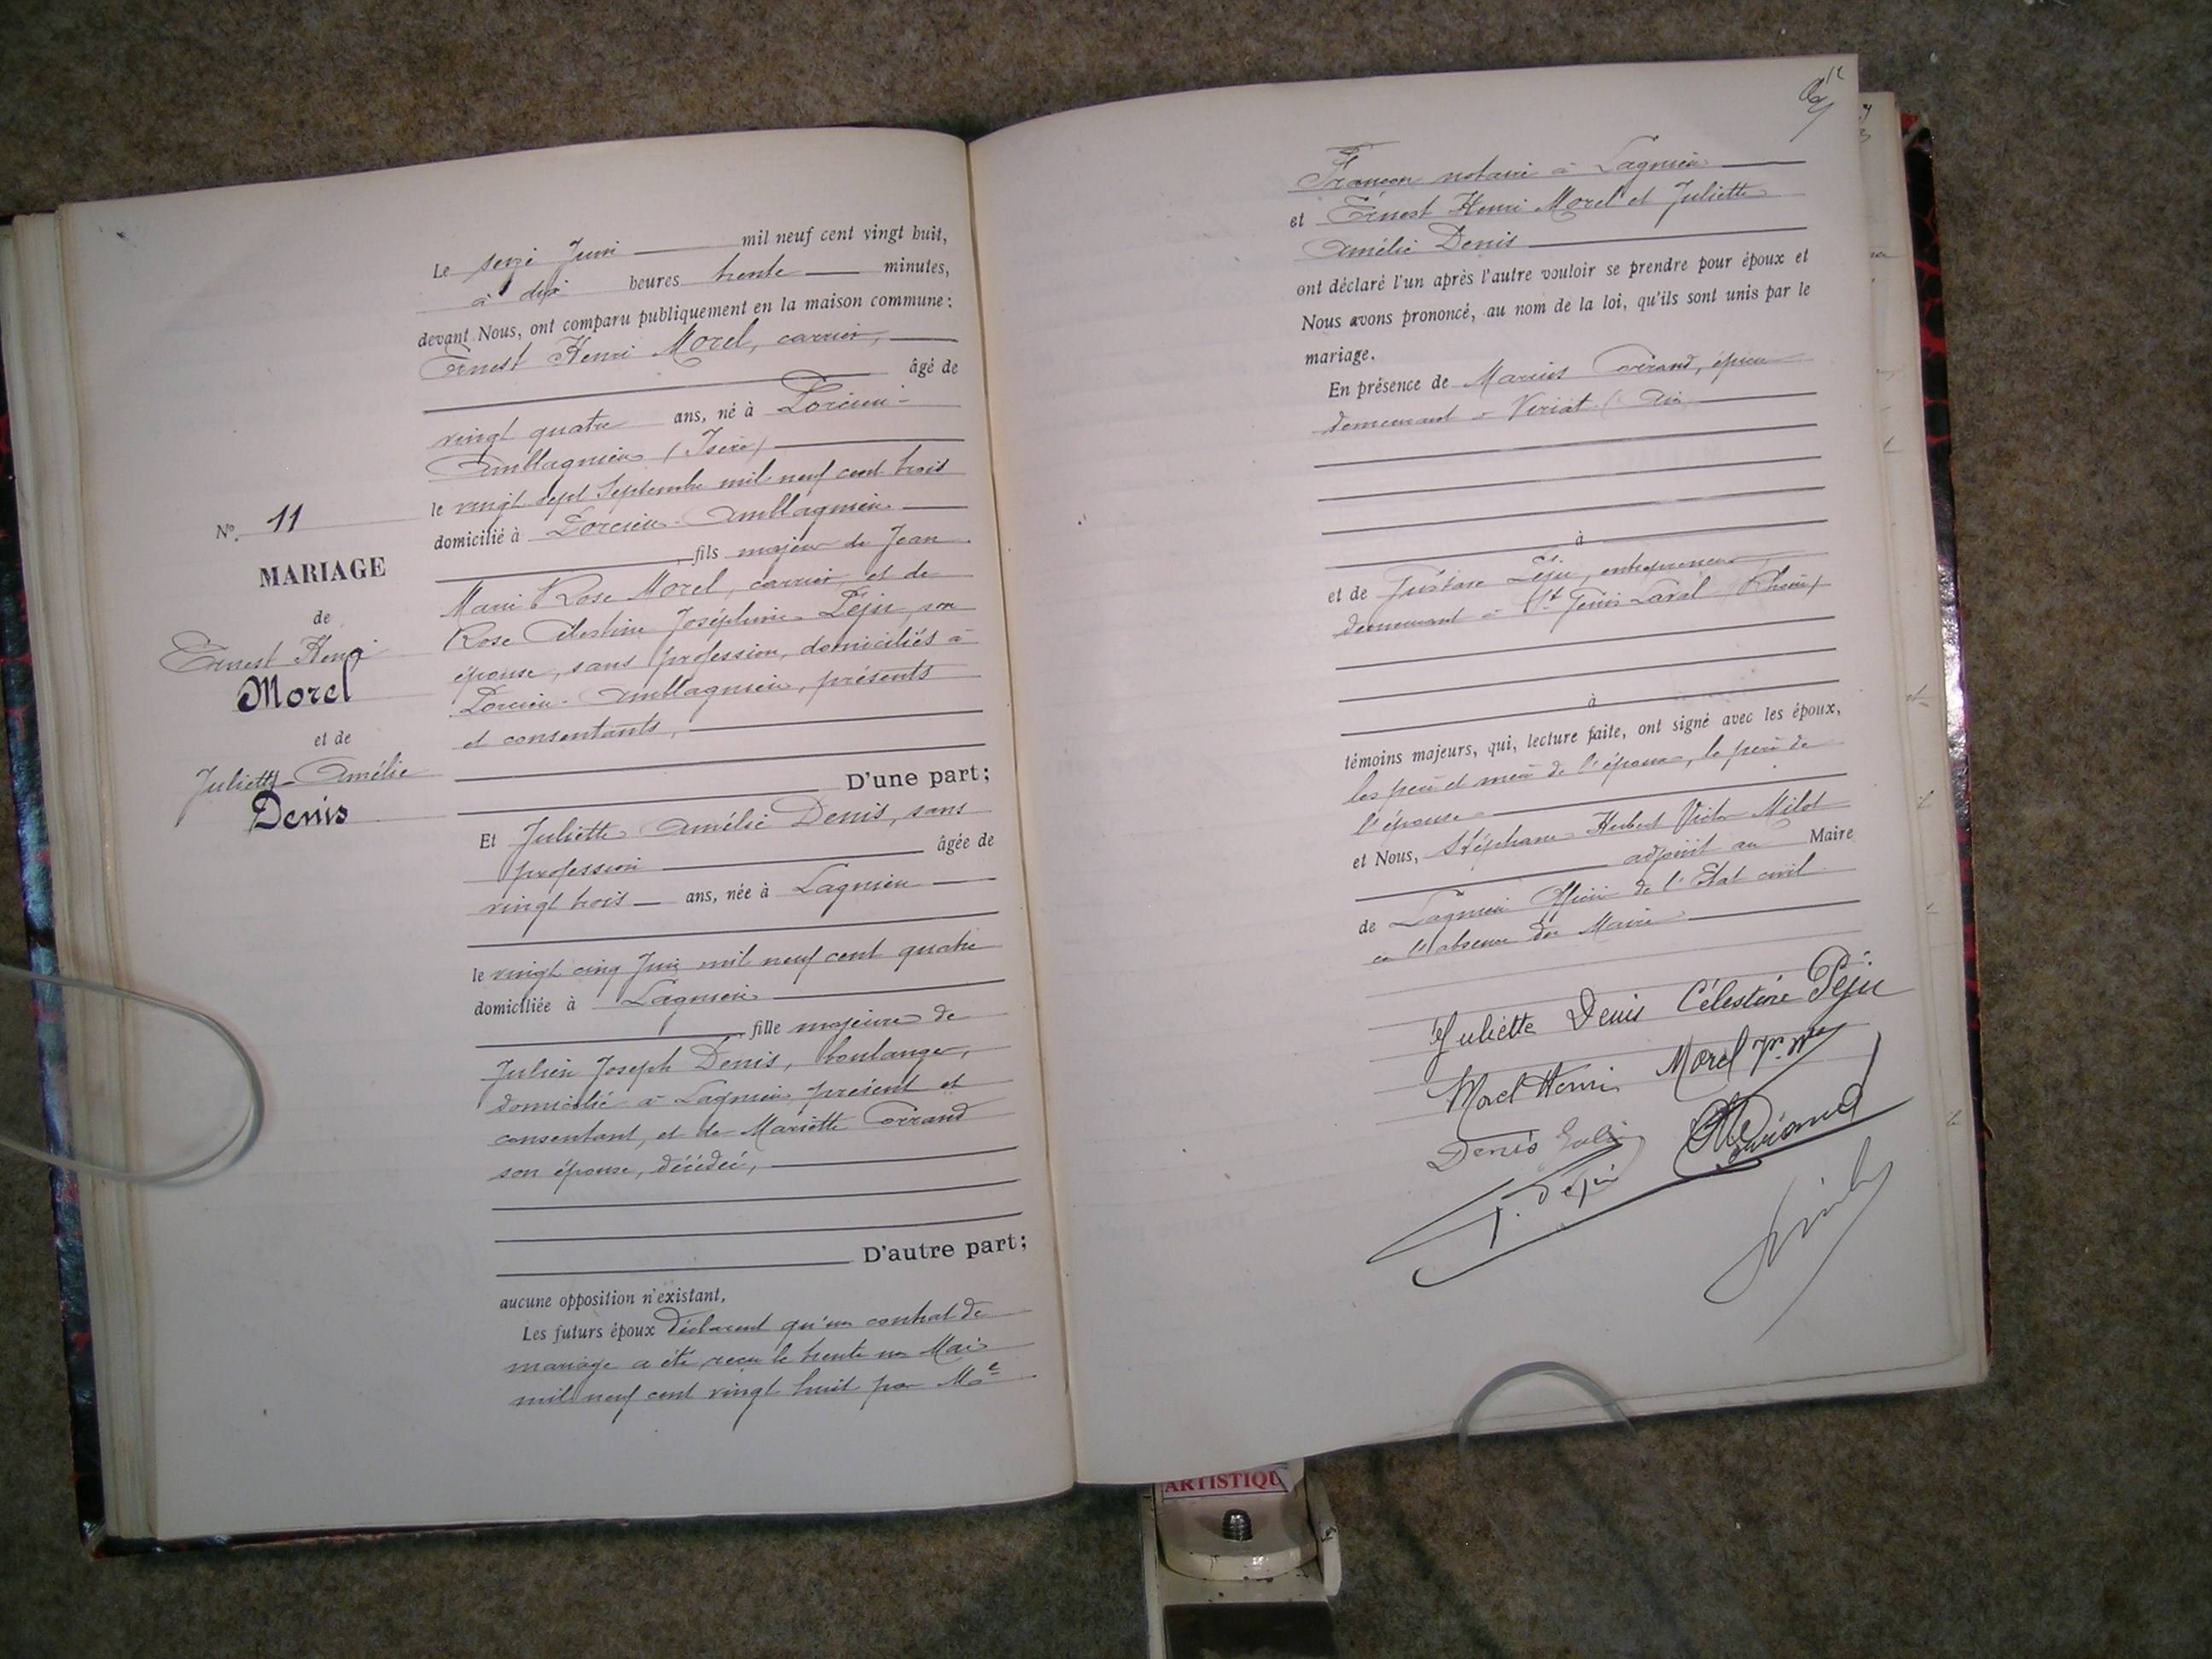 Nº 11
MARIAGE
de
Ernest Henri
Morel
et de
Juliette Amélie
Denis
Le seize Juin mil neuf cent vingt huit,
à dix heures trente minutes,
devant Nous, ont comparu publiquement en la maison commune:
Ernest Henri Morel, carrier,
âgé de
vingt quatre ans, né à Porcieu-
Amblagnieu (Isère)
le vingt sept Septembre mil neuf cent trois
domicilié à Porcieu-Amblagnieu
fils majeur de Jean
Marie Rose Morel, carrier, et de
Rose Célestine Joséphine Péju, son
épouse, sans profession, domiciliés à
Porcieu-Amblagnieu, présents
et consentants,
D'une part;
Et Juliette Amélie Denis, sans
profession âgée de
vingt trois ans, née à Lagnieu
le vingt cinq Juin mil neuf cent quatre
domiciliée à Lagnieu
fille majeure de
Julien Joseph Denis, boulanger,
domicilié à Lagnieu présent et
consentant, et de Mariette
son épouse, décédée,
D'autre part;
aucune opposition n'existant,
Les futurs époux déclarent qu'un contrat de
mariage a été reçu le trente un Mai
mil neuf cent vingt huit par Me
12
Françon notaire à Lagnieu
et Ernest Henri Morel et Juliette
Amélie Denis
ont déclaré l'un après l'autre vouloir se prendre pour époux et
Nous avons prononcé, au nom de la loi, qu'ils sont unis par le
mariage.
En présence de Marius
demeurant à Viriat (Ain)
à
et de Gustave Péju, entrepreneur,
demeurant à St Genis Laval (Rhône)
à
témoins majeurs, qui, lecture faite, ont signé avec les époux,
les père et mère de l'époux, le père de
l'épouse
et Nous, Stéphane Herbert Victor Milot
adjoint au Maire
de Lagnieu Officier de l'Etat civil
en l'absence du Maire
Juliette Denis Célestine Péju
Morel Henri Morel
Denis
Péju
ARTISTIQU